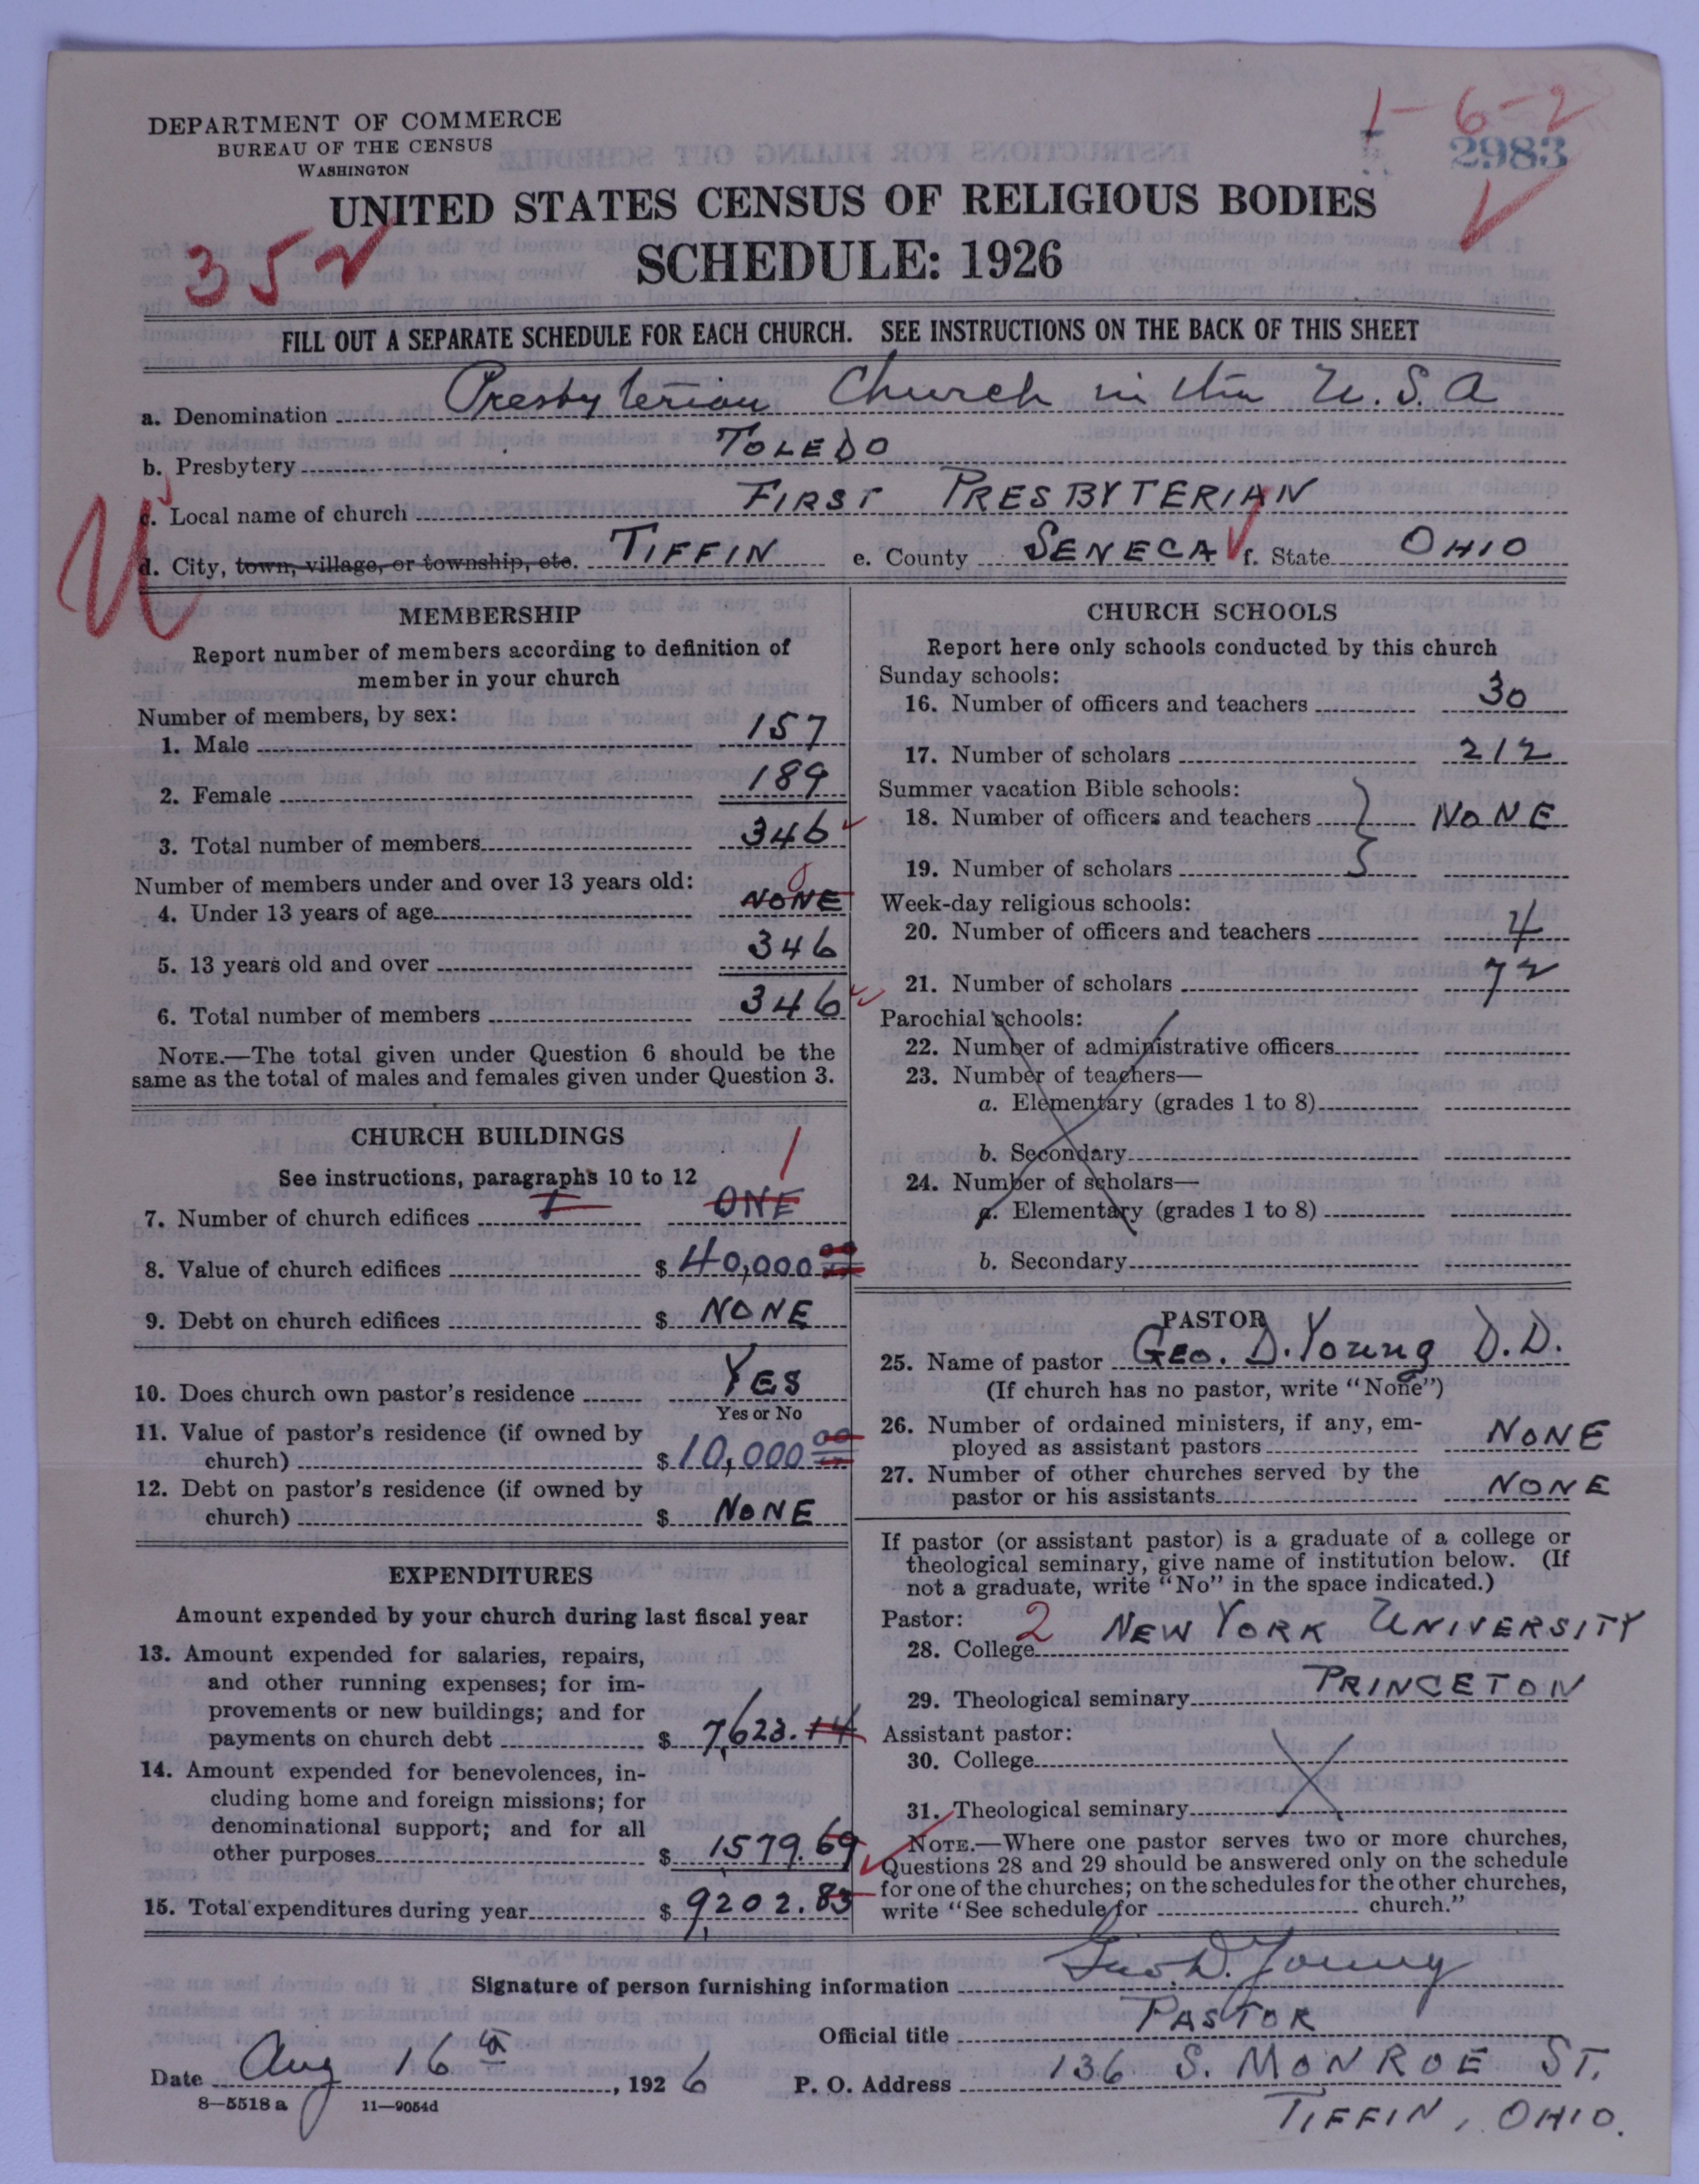 DEPARTMENT OF COMMERCE
BUREAU OF THE CENSUS
WASHINGTON
1-6-2
2983
UNITED STATES CENSUS OF RELIGIOUS BODIES
SCHEDULE: 1926
FILL OUT A SEPARATE SCHEDULE FOR EACH CHURCH. SEE INSTRUCTIONS ON THE BACK OF THIS SHEET
a. Denomination Presbyterian Church in the U.S.A
b. Presbytery TOLEDO
c. Local name of church FIRST PRESBYTERIAN
d. City, town, village, or township, etc. TIFFIN e. County SENECA f. State OHIO
MEMBERSHIP
Report number of members according to definition of
member in your church
Number of members, by sex:
1. Male 157
2. Female 189
3. Total number of members 346
Number of members under and over 13 years old:
4. Under 13 years of age NONE 0
5. 13 years old and over 346
6. Total number of members 346
NOTE.—The total given under Question 6 should be the
same as the total of males and females given under Question 3.
CHURCH BUILDINGS
See instructions, paragraphs 10 to 12
7. Number of church edifices I ONE 1
8. Value of church edifices $ 40,000 00
9. Debt on church edifices $ NONE
10. Does church own pastor's residence YES
Yes or No
11. Value of pastor's residence (if owned by
church) $ 10,000 00
12. Debt on pastor's residence (if owned by
church) $ NONE
EXPENDITURES
Amount expended by your church during last fiscal year
13. Amount expended for salaries, repairs,
and other running expenses; for im-
provements or new buildings; and for
payments on church debt $ 7,623.14
14. Amount expended for benevolences, in-
cluding home and foreign missions; for
denominational support; and for all
other purposes $ 1579.69
15. Total expenditures during year $ 9,202.83
CHURCH SCHOOLS
Report here only schools conducted by this church
Sunday schools:
16. Number of officers and teachers 30
17. Number of scholars 212
Summer vacation Bible schools:
18. Number of officers and teachers NONE
19. Number of scholars
Week-day religious schools:
20. Number of officers and teachers 4
21. Number of scholars 72
Parochial schools:
22. Number of administrative officers
23. Number of teachers—
a. Elementary (grades 1 to 8)
b. Secondary
24. Number of scholars—
a. Elementary (grades 1 to 8)
b. Secondary
PASTOR
25. Name of pastor GEO. D. Young D.D.
(If church has no pastor, write "None")
26. Number of ordained ministers, if any, em-
ployed as assistant pastors NONE
27. Number of other churches served by the
pastor or his assistants NONE
If pastor (or assistant pastor) is a graduate of a college or
theological seminary, give name of institution below. (If
not a graduate, write "No" in the space indicated.)
Pastor: 2
28. College NEW YORK UNIVERSITY
29. Theological seminary PRINCETON
Assistant pastor:
30. College
31. Theological seminary
NOTE.—Where one pastor serves two or more churches,
Questions 28 and 29 should be answered only on the schedule
for one of the churches; on the schedules for the other churches,
write "See schedule for church."
Signature of person furnishing information Geo. D. Young
Official title PASTOR
Date Aug 16th, 1926 P. O. Address 136 S. MONROE ST.
TIFFIN, OHIO.
8—5518 a 11—9054d